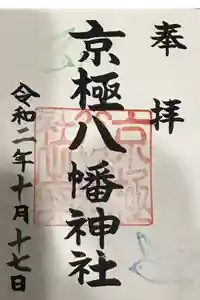 奉拝
京極八幡神社
令和二年十月十七日